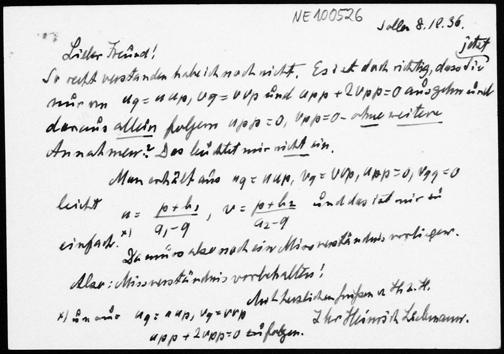 NE100526
Sollen 8.10.36.
Lieber Freund!
So recht verstanden habe ich noch nicht. Es ist doch richtig, dass Sie jetzt
nur von u_q = u u_p, v_q = v v_p und u_pp + 2v_pp = 0 ausgehen und
daraus allein folgern u_pp = 0, v_pp = 0 – ohne weitere
Annahmen? Das leuchtet mir nicht ein.
Man erhält aus u_q = u u_p, v_q = v v_p, u_pp = 0, v_qq = 0
leicht u = (p+b_1)/(a_1-q), v = (p+b_2)/(a_2-q) und das ist mir zu
einfach. *)
Da muss also noch ein Missverständnis vorliegen.
Also: Missverständnis vorbehalten!
Mit herzlichen Grüßen v. H. z. H.
Ihr Heinrich Liebmann.
*) um aus u_q = u u_p, v_q = v v_p
u_pp + 2v_pp = 0 zu folgern.